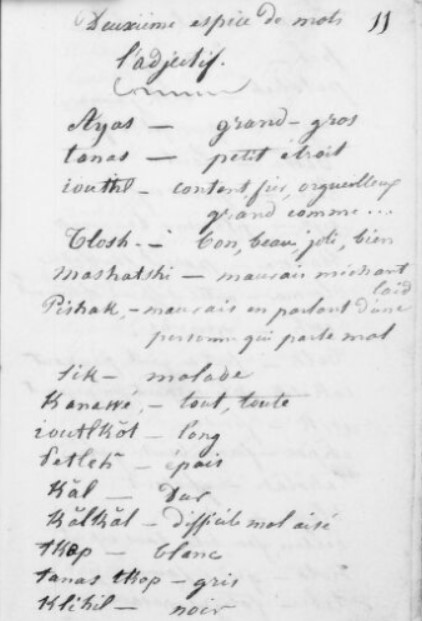 Deuxième espèce de mots 11
l'adjectif.
Ayas — grand - gros
tanas — petit étroit
iouthl - content fier, orgueilleux
grand comme ...
Tlosh - bon, beau, joli, bien
mashatshi — mauvais méchant
laid
Pishak, - mauvais en parlant d'une
personne qui parle mal
sik - malade
Kanawé, - tout, toute
ioutlkŏt - long
— épais
Kăl — Dur
Kălkăl - difficile malaisé
tkop - blanc
tanas tkop - gris
Klihil — noir